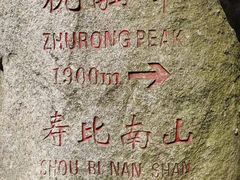 ZHURONG PEAK
1900m →
寿比南山
SHOU BI NAN SHAN